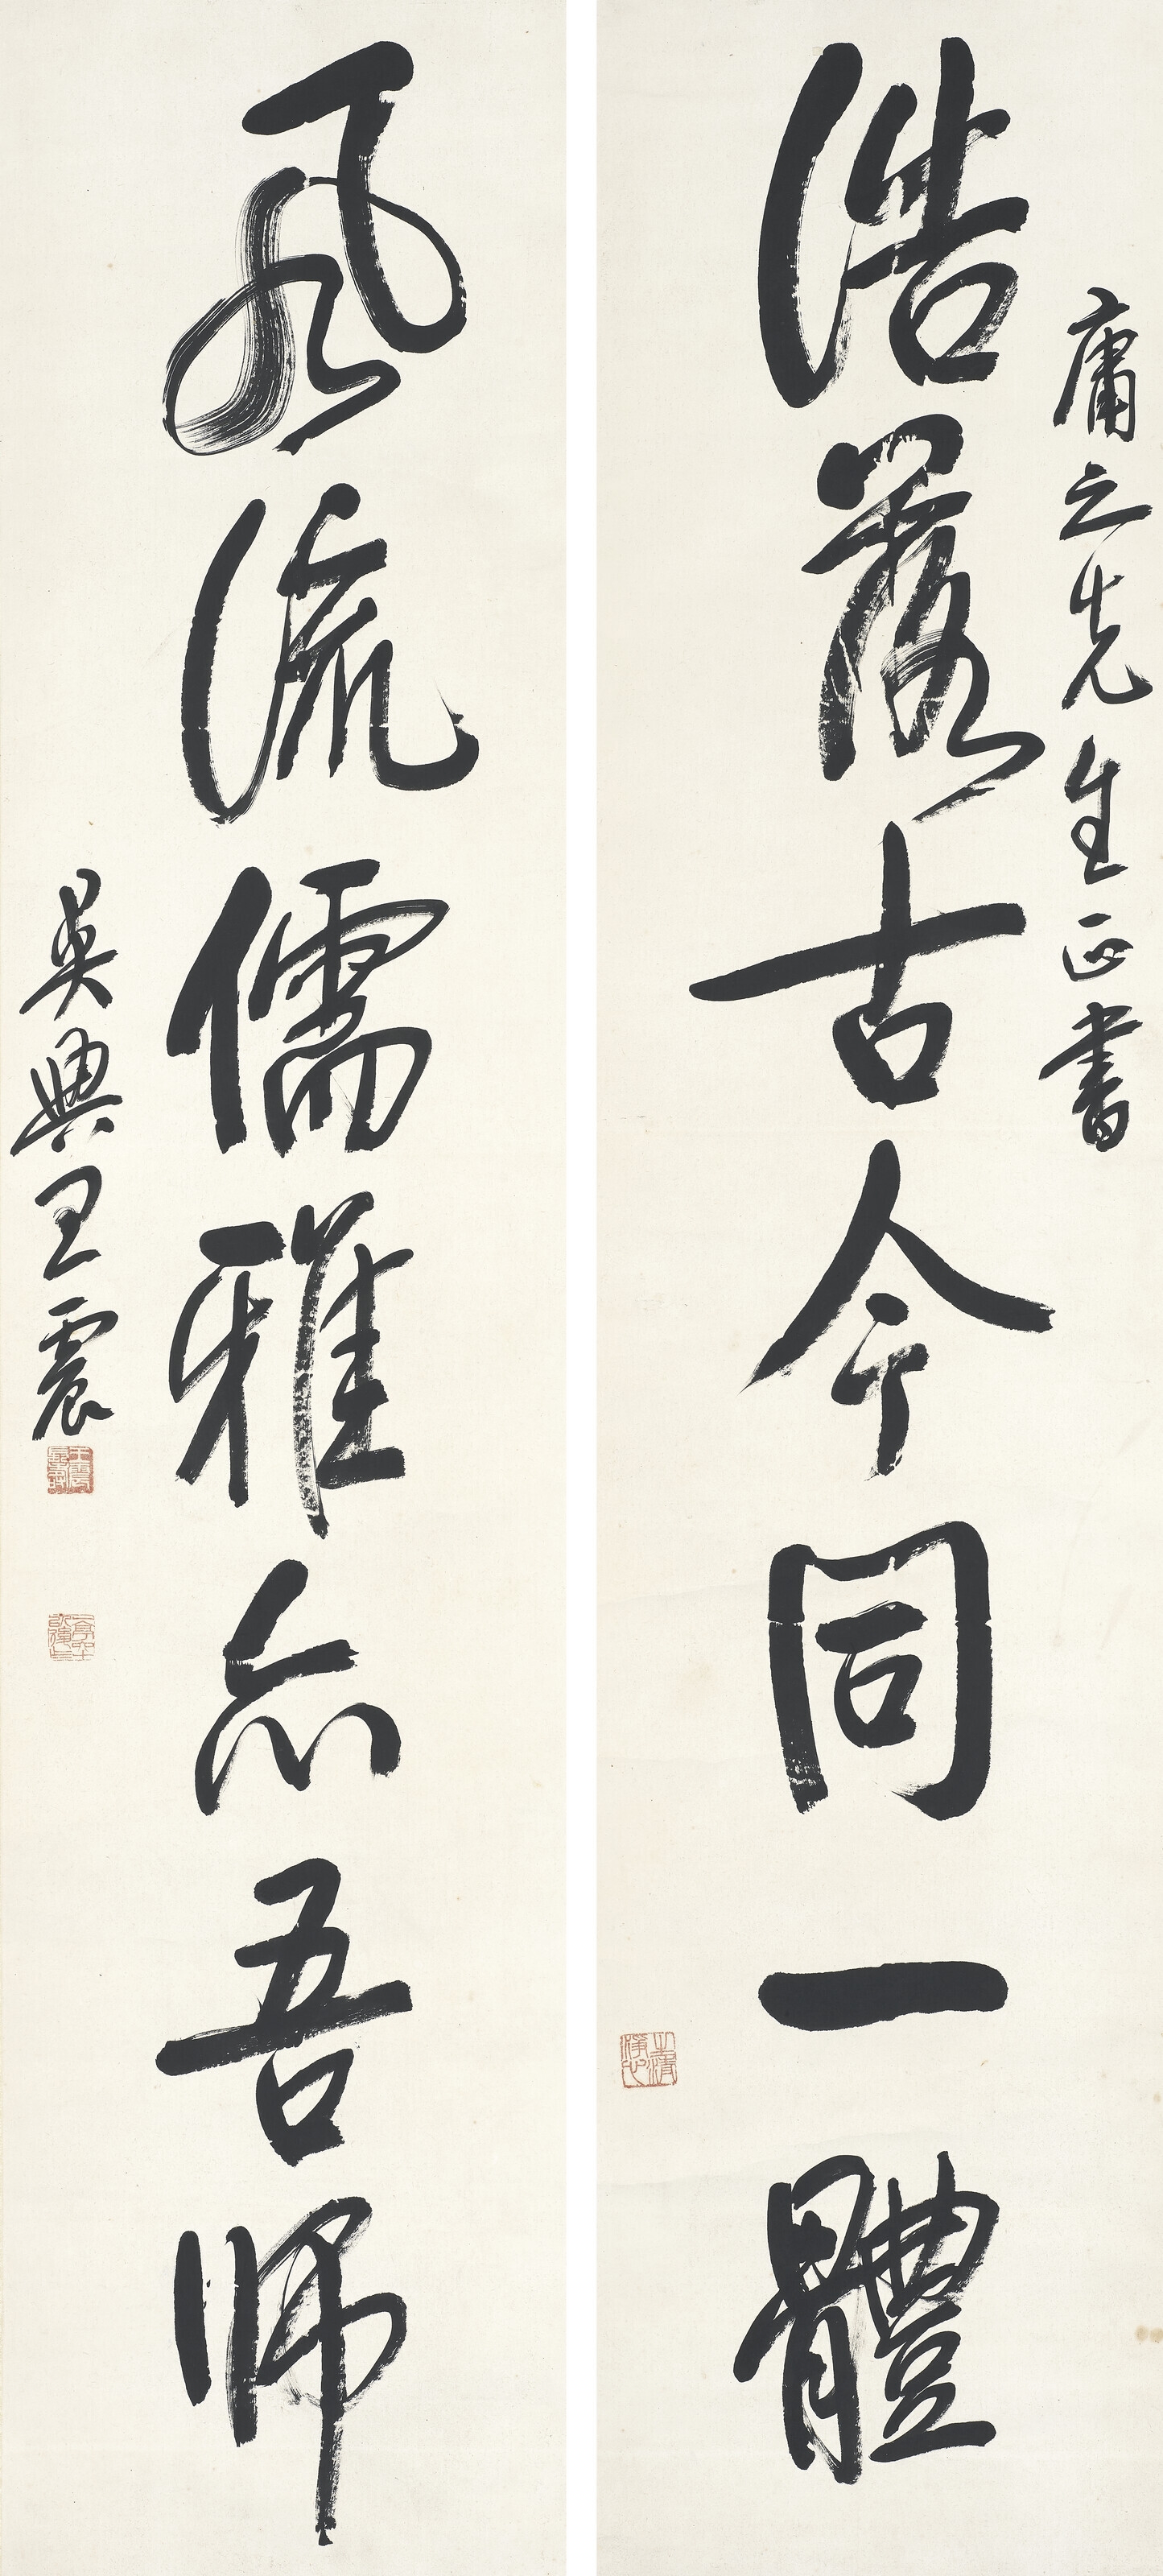 庸之先生正書
浩落古今同一體
風流儒雅亦吾師
吳興王震
王震長壽